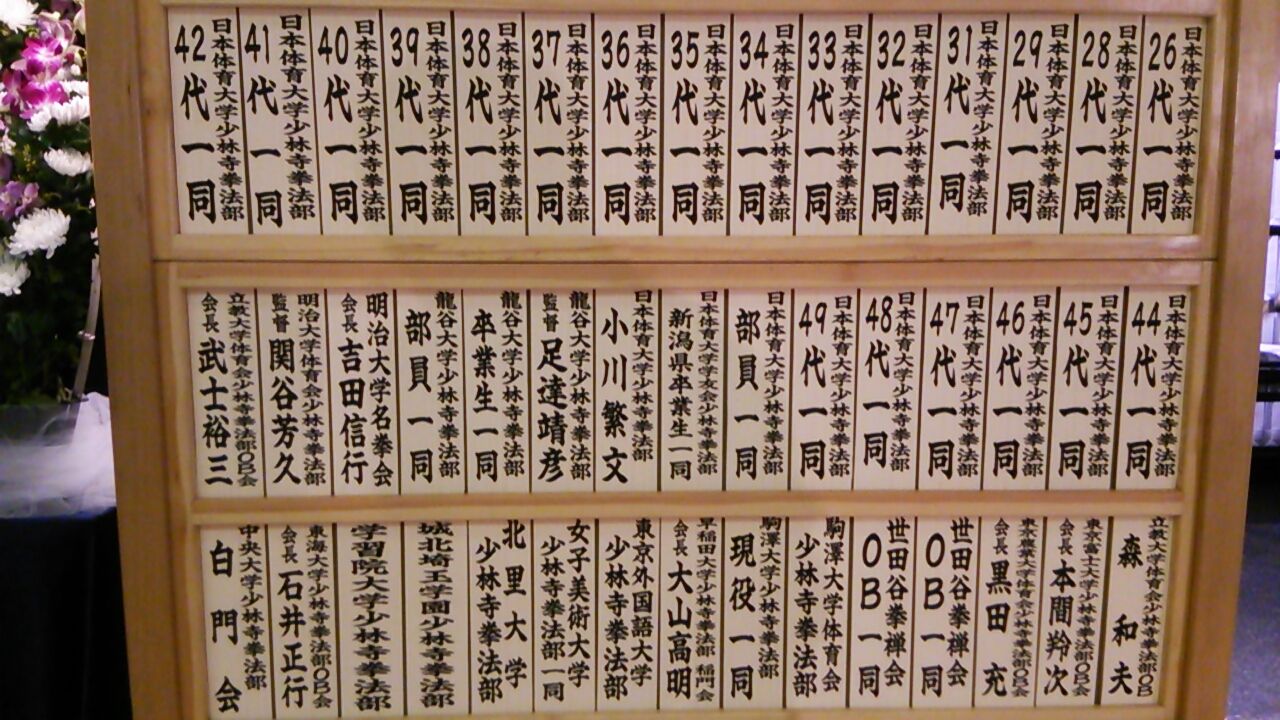 日本体育大学少林寺拳法部
26代一同
日本体育大学少林寺拳法部
28代一同
日本体育大学少林寺拳法部
29代一同
日本体育大学少林寺拳法部
31代一同
日本体育大学少林寺拳法部
32代一同
日本体育大学少林寺拳法部
33代一同
日本体育大学少林寺拳法部
34代一同
日本体育大学少林寺拳法部
35代一同
日本体育大学少林寺拳法部
36代一同
日本体育大学少林寺拳法部
37代一同
日本体育大学少林寺拳法部
38代一同
日本体育大学少林寺拳法部
39代一同
日本体育大学少林寺拳法部
40代一同
日本体育大学少林寺拳法部
41代一同
日本体育大学少林寺拳法部
42代一同
日本体育大学少林寺拳法部
44代一同
日本体育大学少林寺拳法部
45代一同
日本体育大学少林寺拳法部
46代一同
日本体育大学少林寺拳法部
47代一同
日本体育大学少林寺拳法部
48代一同
日本体育大学少林寺拳法部
49代一同
日本体育大学少林寺拳法部
部員一同
日本体育大学学友会少林寺拳法部
新潟県卒業生一同
日本体育大学少林寺拳法部
小川繁文
龍谷大学少林寺拳法部
監督 足達靖彦
龍谷大学少林寺拳法部
卒業生一同
龍谷大学少林寺拳法部
部員一同
明治大学名拳会
会長 吉田信行
明治大学体育会少林寺拳法部
監督 関谷芳久
立教大学体育会少林寺拳法部OB会
会長 武士裕三
立教大学体育会少林寺拳法部OB
森和夫
東京富士大学少林寺拳法部OB会
会長 本間羚次
東京農業大学体育会少林寺拳法部OB会
会長 黒田充
世田谷拳禅会
OB一同
世田谷拳禅会
OB一同
駒澤大学体育会
少林寺拳法部
駒澤大学少林寺拳法部
現役一同
早稲田大学少林寺拳法部 稲門会
会長 大山高明
東京外国語大学
少林寺拳法部
女子美術大学
少林寺拳法部一同
北里大学
少林寺拳法部
城北埼玉学園少林寺拳法部
学習院大学少林寺拳法部
東海大学少林寺拳法部OB会
会長 石井正行
中央大学少林寺拳法部
白門会